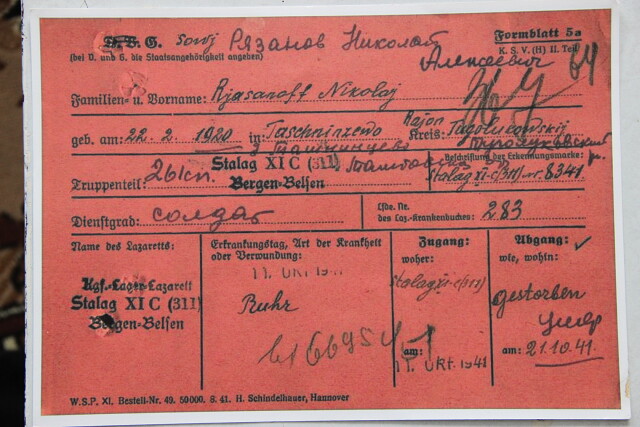 D. V. G. sowj Рязанов Николай Formblatt 5a
(bei D. und G. die Staatsangehörigkeit angeben) K. S. V. (H) II. Teil
Алексеевич
Familien- u. Vorname: Rjasanoff Nikolaj
geb. am: 22. 2. 1920 in: Taschninzewo Rajon Kreis:
Stalag XI C (311) Beschriftung der Erkennungsmarke:
Truppenteil: Bergen-Belsen Stalag XI-C(311) nr. 8341
Dienstgrad: солдат Lfde. Nr. des Laz.-Krankenbuches: 283
Name des Lazaretts: Erkrankungstag, Art der Krankheit oder Verwundung: Zugang: woher: Abgang: wie, wohin:
11. OKT. 194
Kgf.-Lager-Lazarett Stalag XI-C(311)
Stalag XI C (311) Ruhr gestorben
Bergen-Belsen умер
am: 11. OKT. 1941 am: 21.10.41.
W.S.P. XI. Bestell-Nr. 49. 50000. S. 41. H. Schindelhauer, Hannover